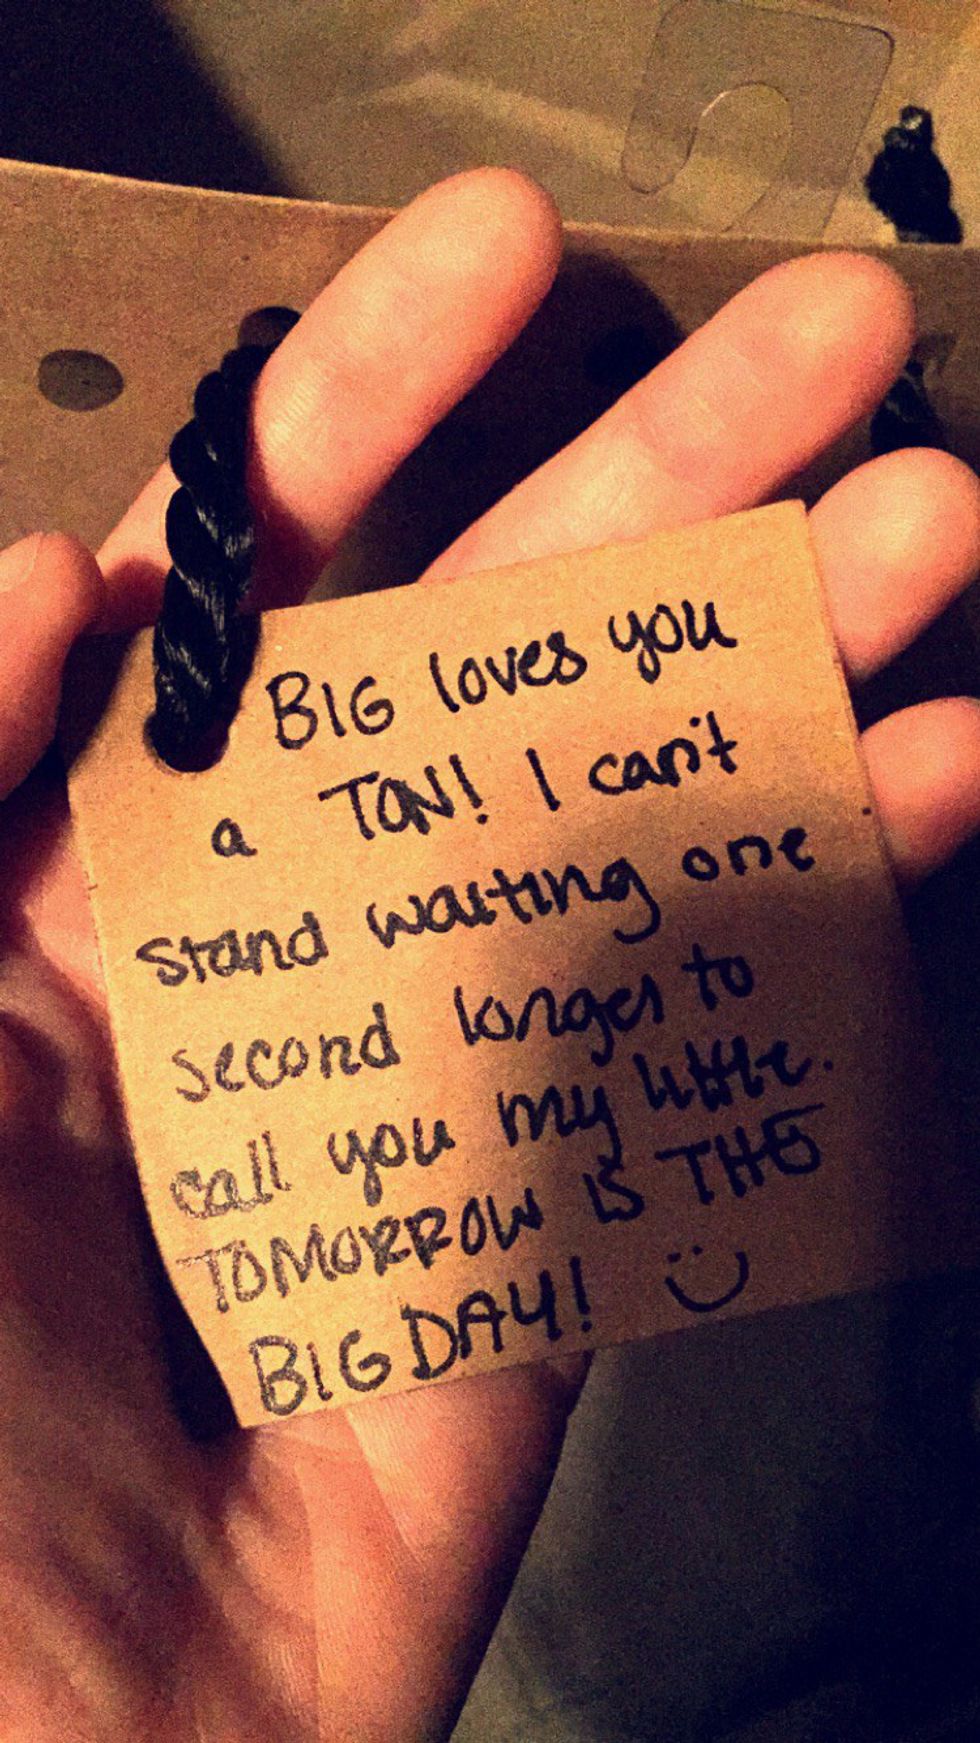 BIG loves you
a TON! I can't
stand waiting one
second longer to
call you my little.
TOMORROW IS THE
BIG DAY! :)